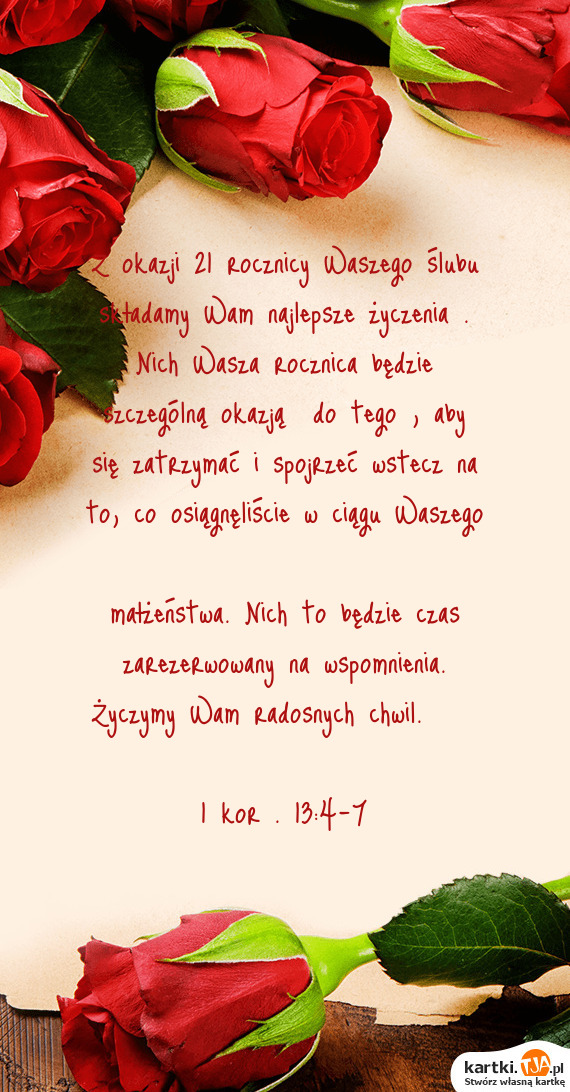 Z okazji 21 rocznicy Waszego ślubu
składamy Wam najlepsze życzenia .
Nich Wasza rocznica będzie
szczególną okazją do tego , aby
się zatrzymać i spojrzeć wstecz na
to, co osiągnęliście w ciągu Waszego
małżeństwa. Nich to będzie czas
zarezerwowany na wspomnienia.
Życzymy Wam radosnych chwil.
1 kor . 13:4-7
kartki.TJA.pl
Stwórz własną kartkę